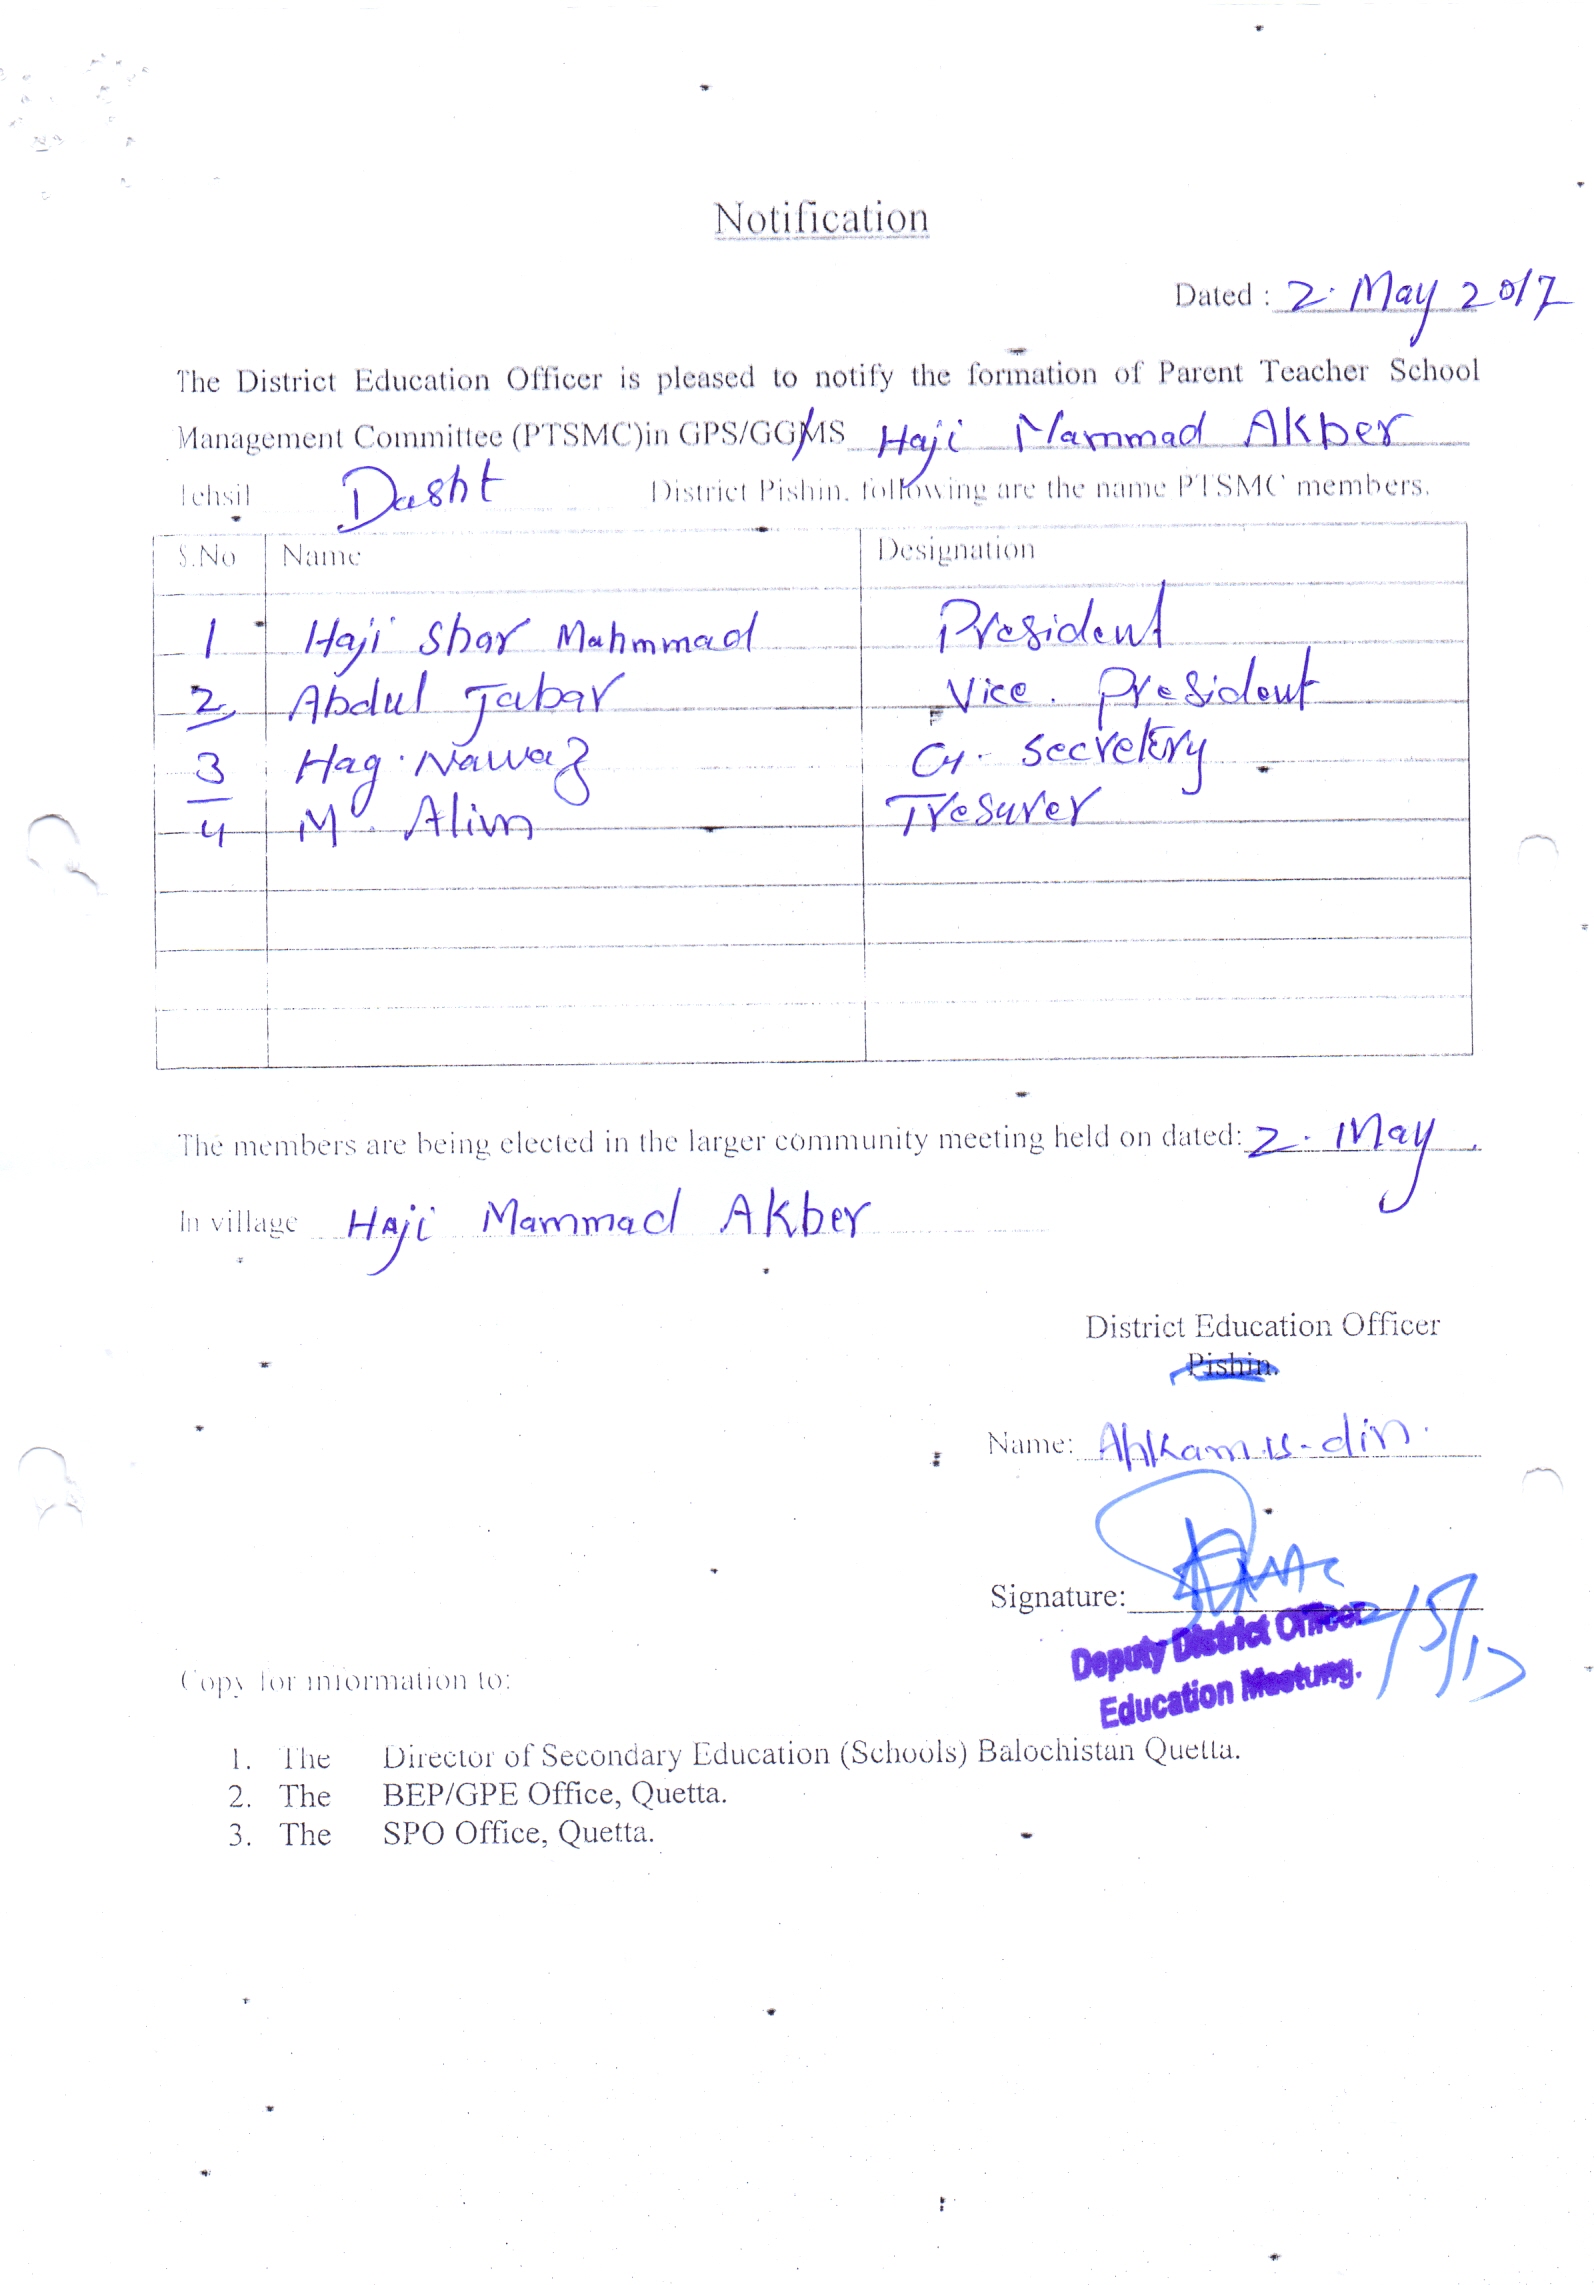 Notification
Dated : 2. May 2017
The District Education Officer is pleased to notify the formation of Parent Teacher School
Management Committee (PTSMC)in GPS/GGMS Haji Mammad Akber
Tehsil Dasht District Pishin. following are the name PTSMC members.
S.No Name Designation
1 Haji Shar Mahmmad President
2 Abdul Jabar Vice. President
3 Haq. Nawaz G. Secretery
4 M. Alim Tresurer
The members are being elected in the larger community meeting held on dated: 2. May
In village Haji Mammad Akber
District Education Officer
Pishin.
Name: Ahkam.u-din.
Signature: 2/5/17
Deputy District Officer
Education Mastung.
Copy for information to:
1. The Director of Secondary Education (Schools) Balochistan Quetta.
2. The BEP/GPE Office, Quetta.
3. The SPO Office, Quetta.